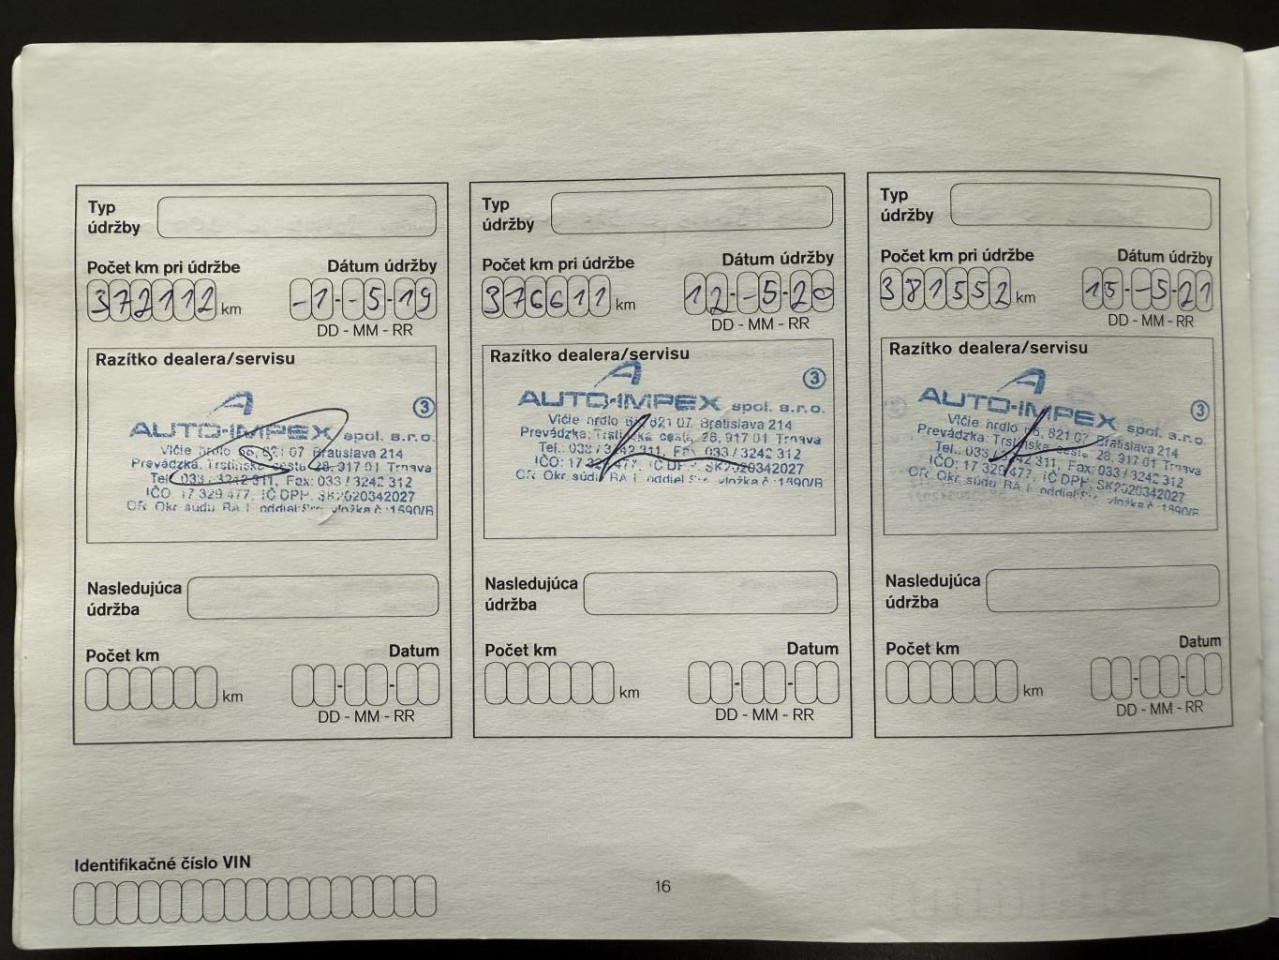 Typ
údržby
Počet km pri údržbe Dátum údržby
372112 km -1 - -5 - 19
DD - MM - RR
Razítko dealera/servisu
3
AUTO-IMPEX spol. s.r.o.
Vlčie hrdlo 821 07 Bratislava 214
Prevádzka: Trstínska cesta 28, 917 01 Trnava
Tel.: 033 / 3242 311, Fax: 033 / 3242 312
IČO: 17 329 477, IČ DPH: SK2020342027
OR Okr. súdu BA I. oddiel Sro vložka č.:1590/B
Nasledujúca
údržba
Počet km Datum
km
DD - MM - RR
Typ
údržby
Počet km pri údržbe Dátum údržby
376611 km 12 - -5 - 20
DD - MM - RR
Razítko dealera/servisu
3
AUTO-IMPEX spol. s.r.o.
Vlčie hrdlo 821 07 Bratislava 214
Prevádzka: Trstínska cesta 28, 917 01 Trnava
Tel.: 033 / 3242 311, Fax: 033 / 3242 312
IČO: 17 329 477, IČ DPH: SK2020342027
OR Okr. súdu BA I. oddiel Sro vložka č.:1590/B
Nasledujúca
údržba
Počet km Datum
km
DD - MM - RR
Typ
údržby
Počet km pri údržbe Dátum údržby
381552 km 15 - -5 - 21
DD - MM - RR
Razítko dealera/servisu
3
AUTO-IMPEX spol. s.r.o.
Vlčie hrdlo 821 07 Bratislava 214
Prevádzka: Trstínska cesta 28, 917 01 Trnava
Tel.: 033 / 3242 311, Fax: 033 / 3242 312
IČO: 17 329 477, IČ DPH: SK2020342027
OR Okr. súdu BA I. oddiel Sro vložka č.:1590/B
Nasledujúca
údržba
Počet km Datum
km
DD - MM - RR
Identifikačné číslo VIN
16